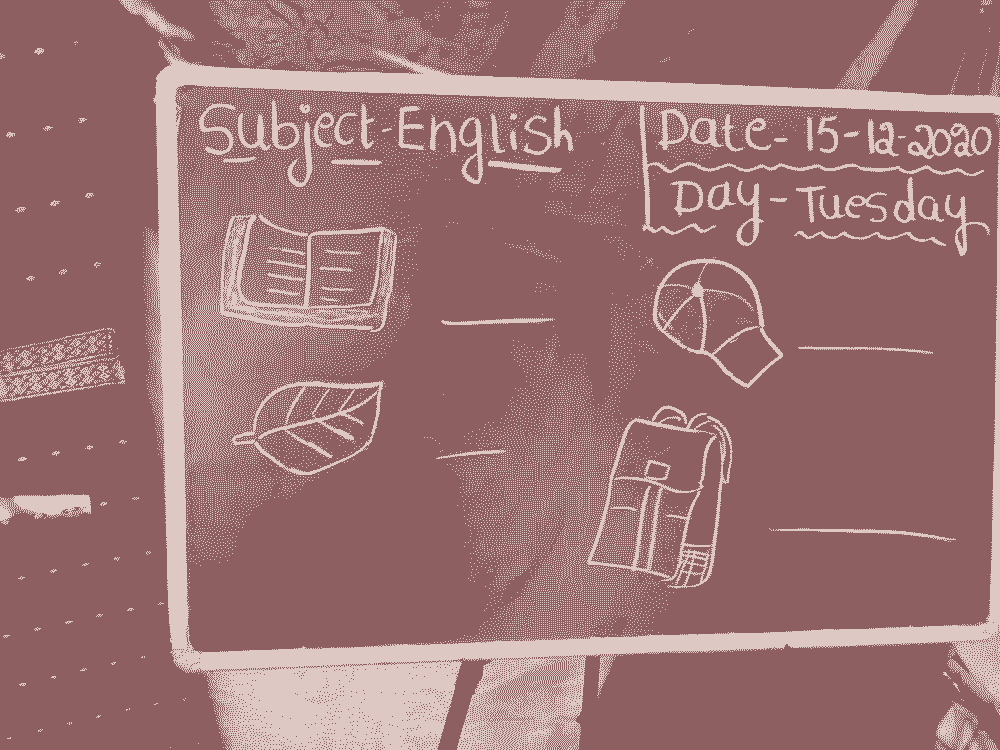 Subject-English
Date- 15-12-2020
Day-Tuesday